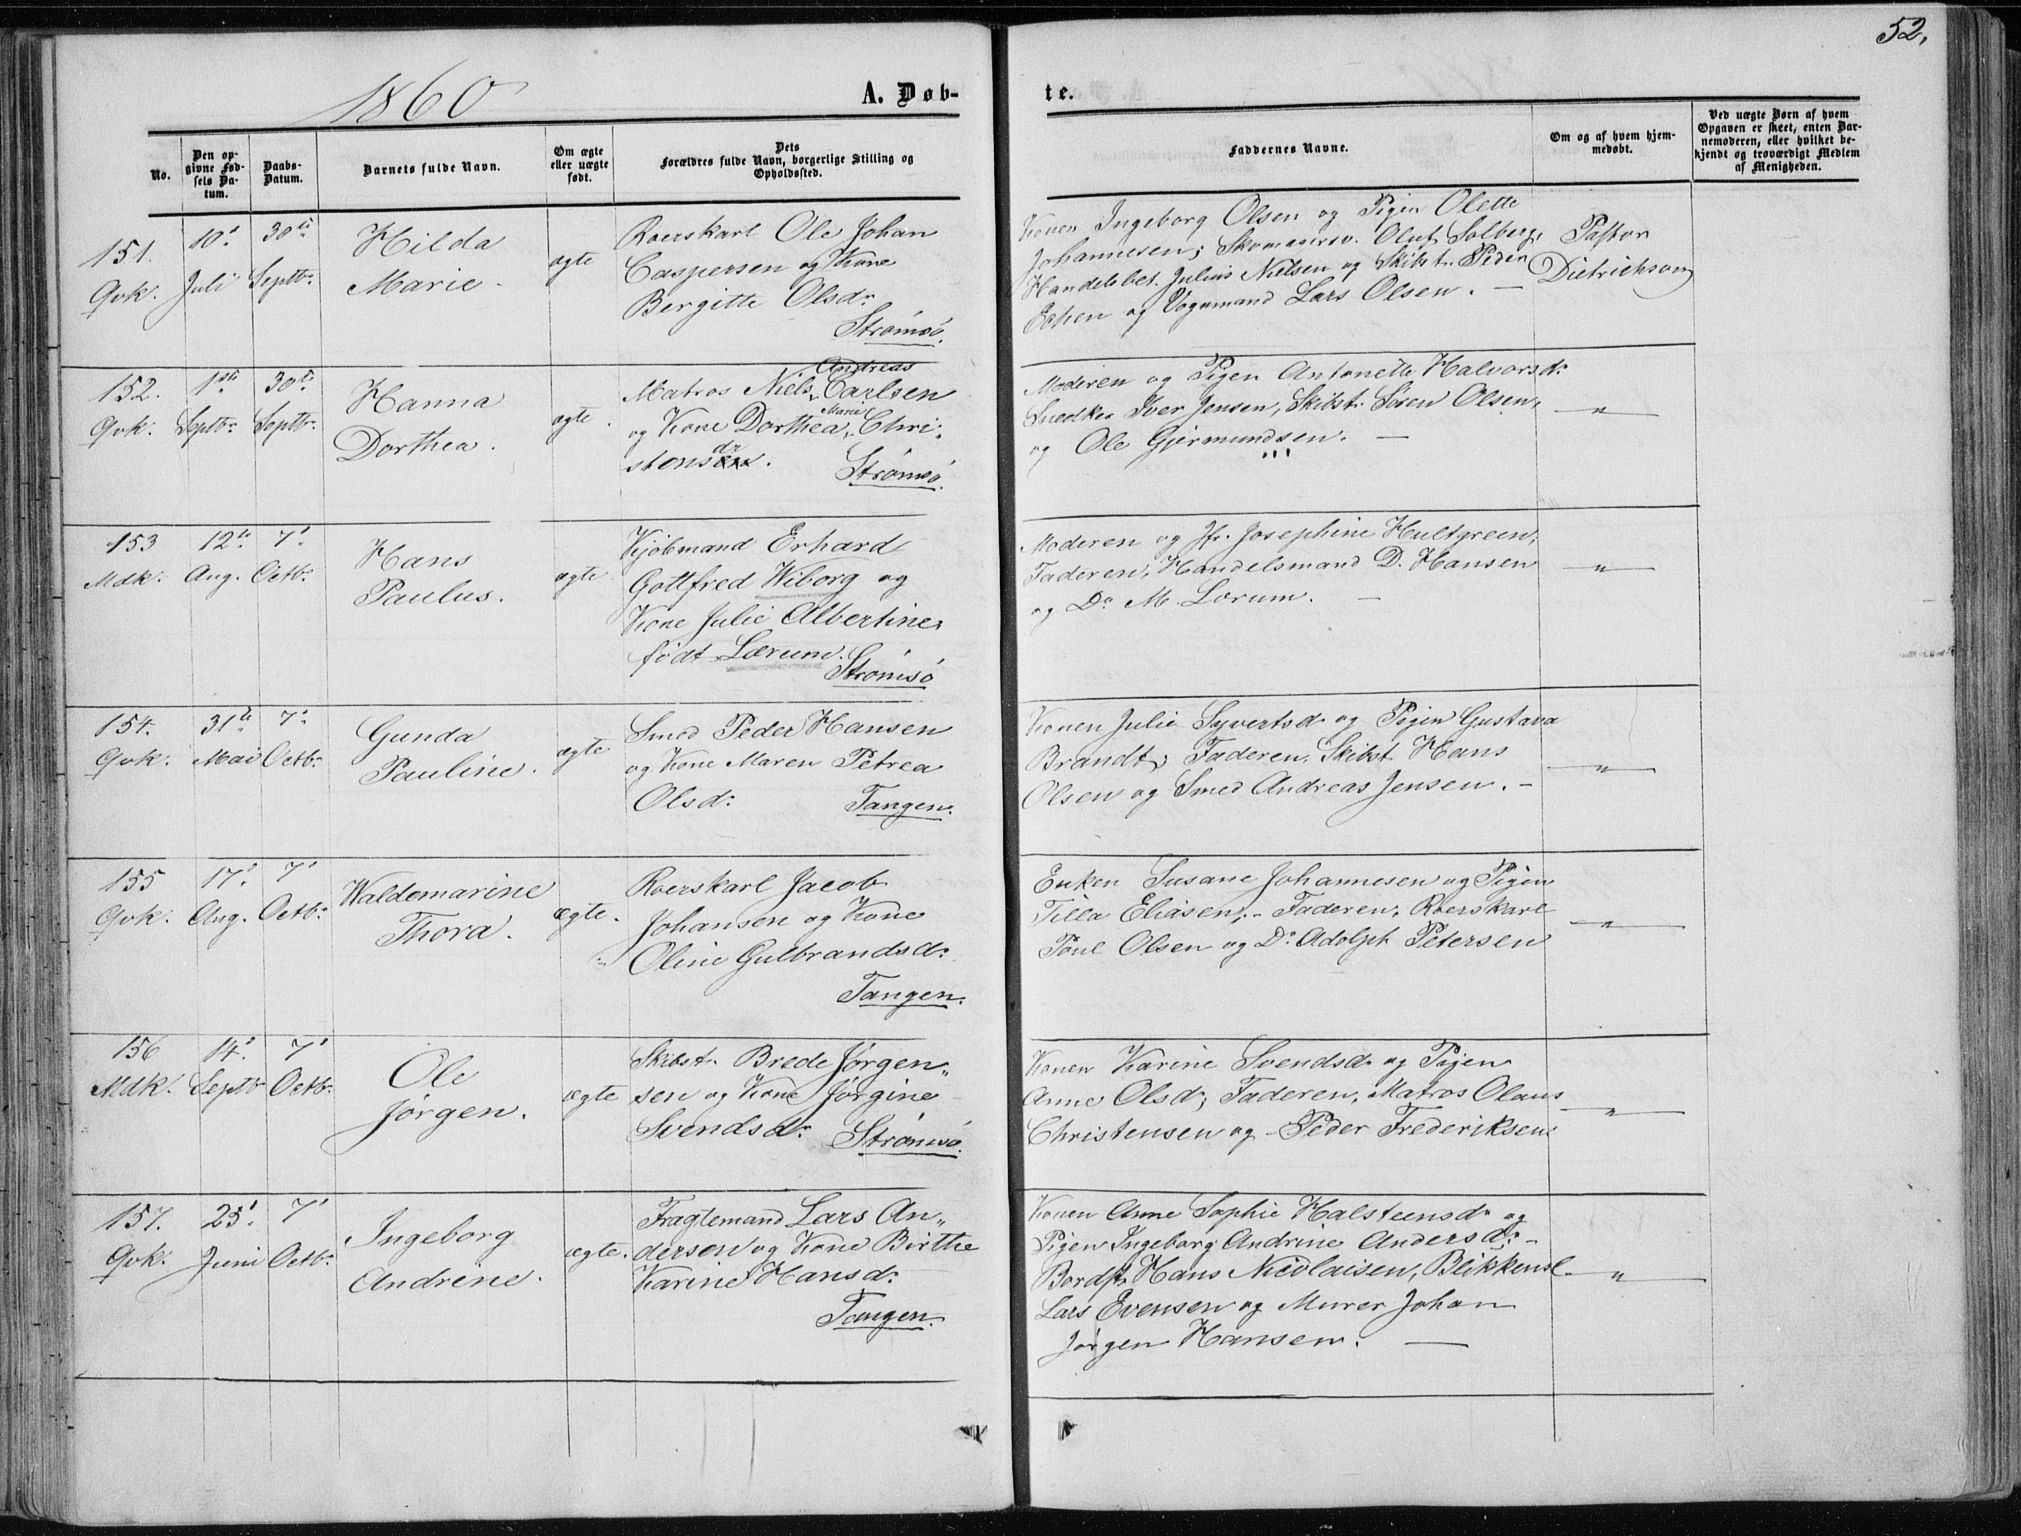 52,
1860
A. Døb-
te.
No.
Den op-
givne Fød-
sels Da-
tum.
Daabs-
Datum.
Barnets fulde Navn.
Om ægte
eller uægte
født.
Dets
Forældres fulde Navn, borgerlige Stilling og
Opholdssted.
Faddernes Navne.
Om og af hvem hjem-
medøbt.
Ved uægte Børn af hvem
Opgaven er skeet, enten Bar-
nemoderen, eller hvilket be-
kjendt og troværdigt Medlem
af Menigheden.
151.
Qvk.
10'
Juli
30te
Septbr.
Hilda
Marie.
ægte
Roerskarl Ole Johan
Caspersen og Kone
Bergitte Olsdr.
Strømsø.
Konen Ingeborg Olsen og Pigen Olette
Johannesen; Skomagersv. Oluf Solberg,
Handelsbet. Julius Nielsen og Skibst. Peder
og Vognmand Lars Olsen. —
Pastor
Dietrichson
152.
Qvk.
1ste
Septbr.
30te
Septbr.
Hanna
Dorthea.
ægte.
Andreas
Matros Niels Carlsen
Marie
og Kone Dorthea Chri-
dr
stens.
Strømsø.
Moderen og Pigen Antonette Halvorsdr.
Snedker Iver Jensen, Skibst. Søren Olsen,
og Ole Gjermundsen. —
— " —
153
Mdk.
12te
Aug.
7'
Octbr.
Hans
Paulus.
ægte
Kjøbmand Erhard
Gottfred Wiborg og
Kone Julie Albertine,
født Lærum.
Strømsø
Moderen og Jfr. Josephine Hultgreen,
Faderen, Handelsmand D. Hansen
og Do M. Lorum. —
— " —
154.
Qvk.
31te
Mai
7'
Octbr.
Gunda
Pauline.
ægte
Smed Peder Hansen
og Kone Maren Petrea
Olsdr.
Tangen.
Konen Julie Syvertsdr. og Pigen Gustava
Brandt; Faderen, Skibst. Hans
Olsen og Smed Andreas Jensen. —
— " —
155
Qvk.
17'
Aug.
7'
Octbr.
Waldemarine
Thora.
ægte.
Roerskarl Jacob
Johansen og Kone
Oline Gulbrandsdr.
Tangen.
Enken Susane Johannesen og Pigen
Tilla Eliasen, - Faderen, Roerskarl
Poul Olsen og Do Adolph Petersen
— " —
156
Mdk.
14'
Septbr
7'
Octbr.
Ole
Jørgen.
ægte
Skibst. Brede Jørgen-
sen og Kone Jørgine
Svendsdr.
Strømsø.
Konen Karine Svendsdr. og Pigen
Anne Olsd; Faderen, Matros Olaus
Christensen og Peder Frederiksen
— " —
157.
Qvk.
25'
Juni
7'
Octbr.
Ingeborg
Andrine.
ægte.
Fragtemand Lars An-
dersen og Kone Birthe
Karine Hansdr.
Tangen.
Konen Anne Sophie Halsteensdr. og
Pigen Ingeborg Andrine Andersdr. -
Bordst. Hans Nicolaisen, Blikkensl.
Lars Evensen og Murer Johan
Jørgen Hansen. —
— " —